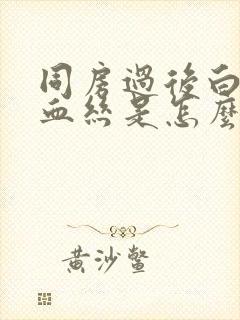 同房過後白
血絲是怎麼
黄沙鳖